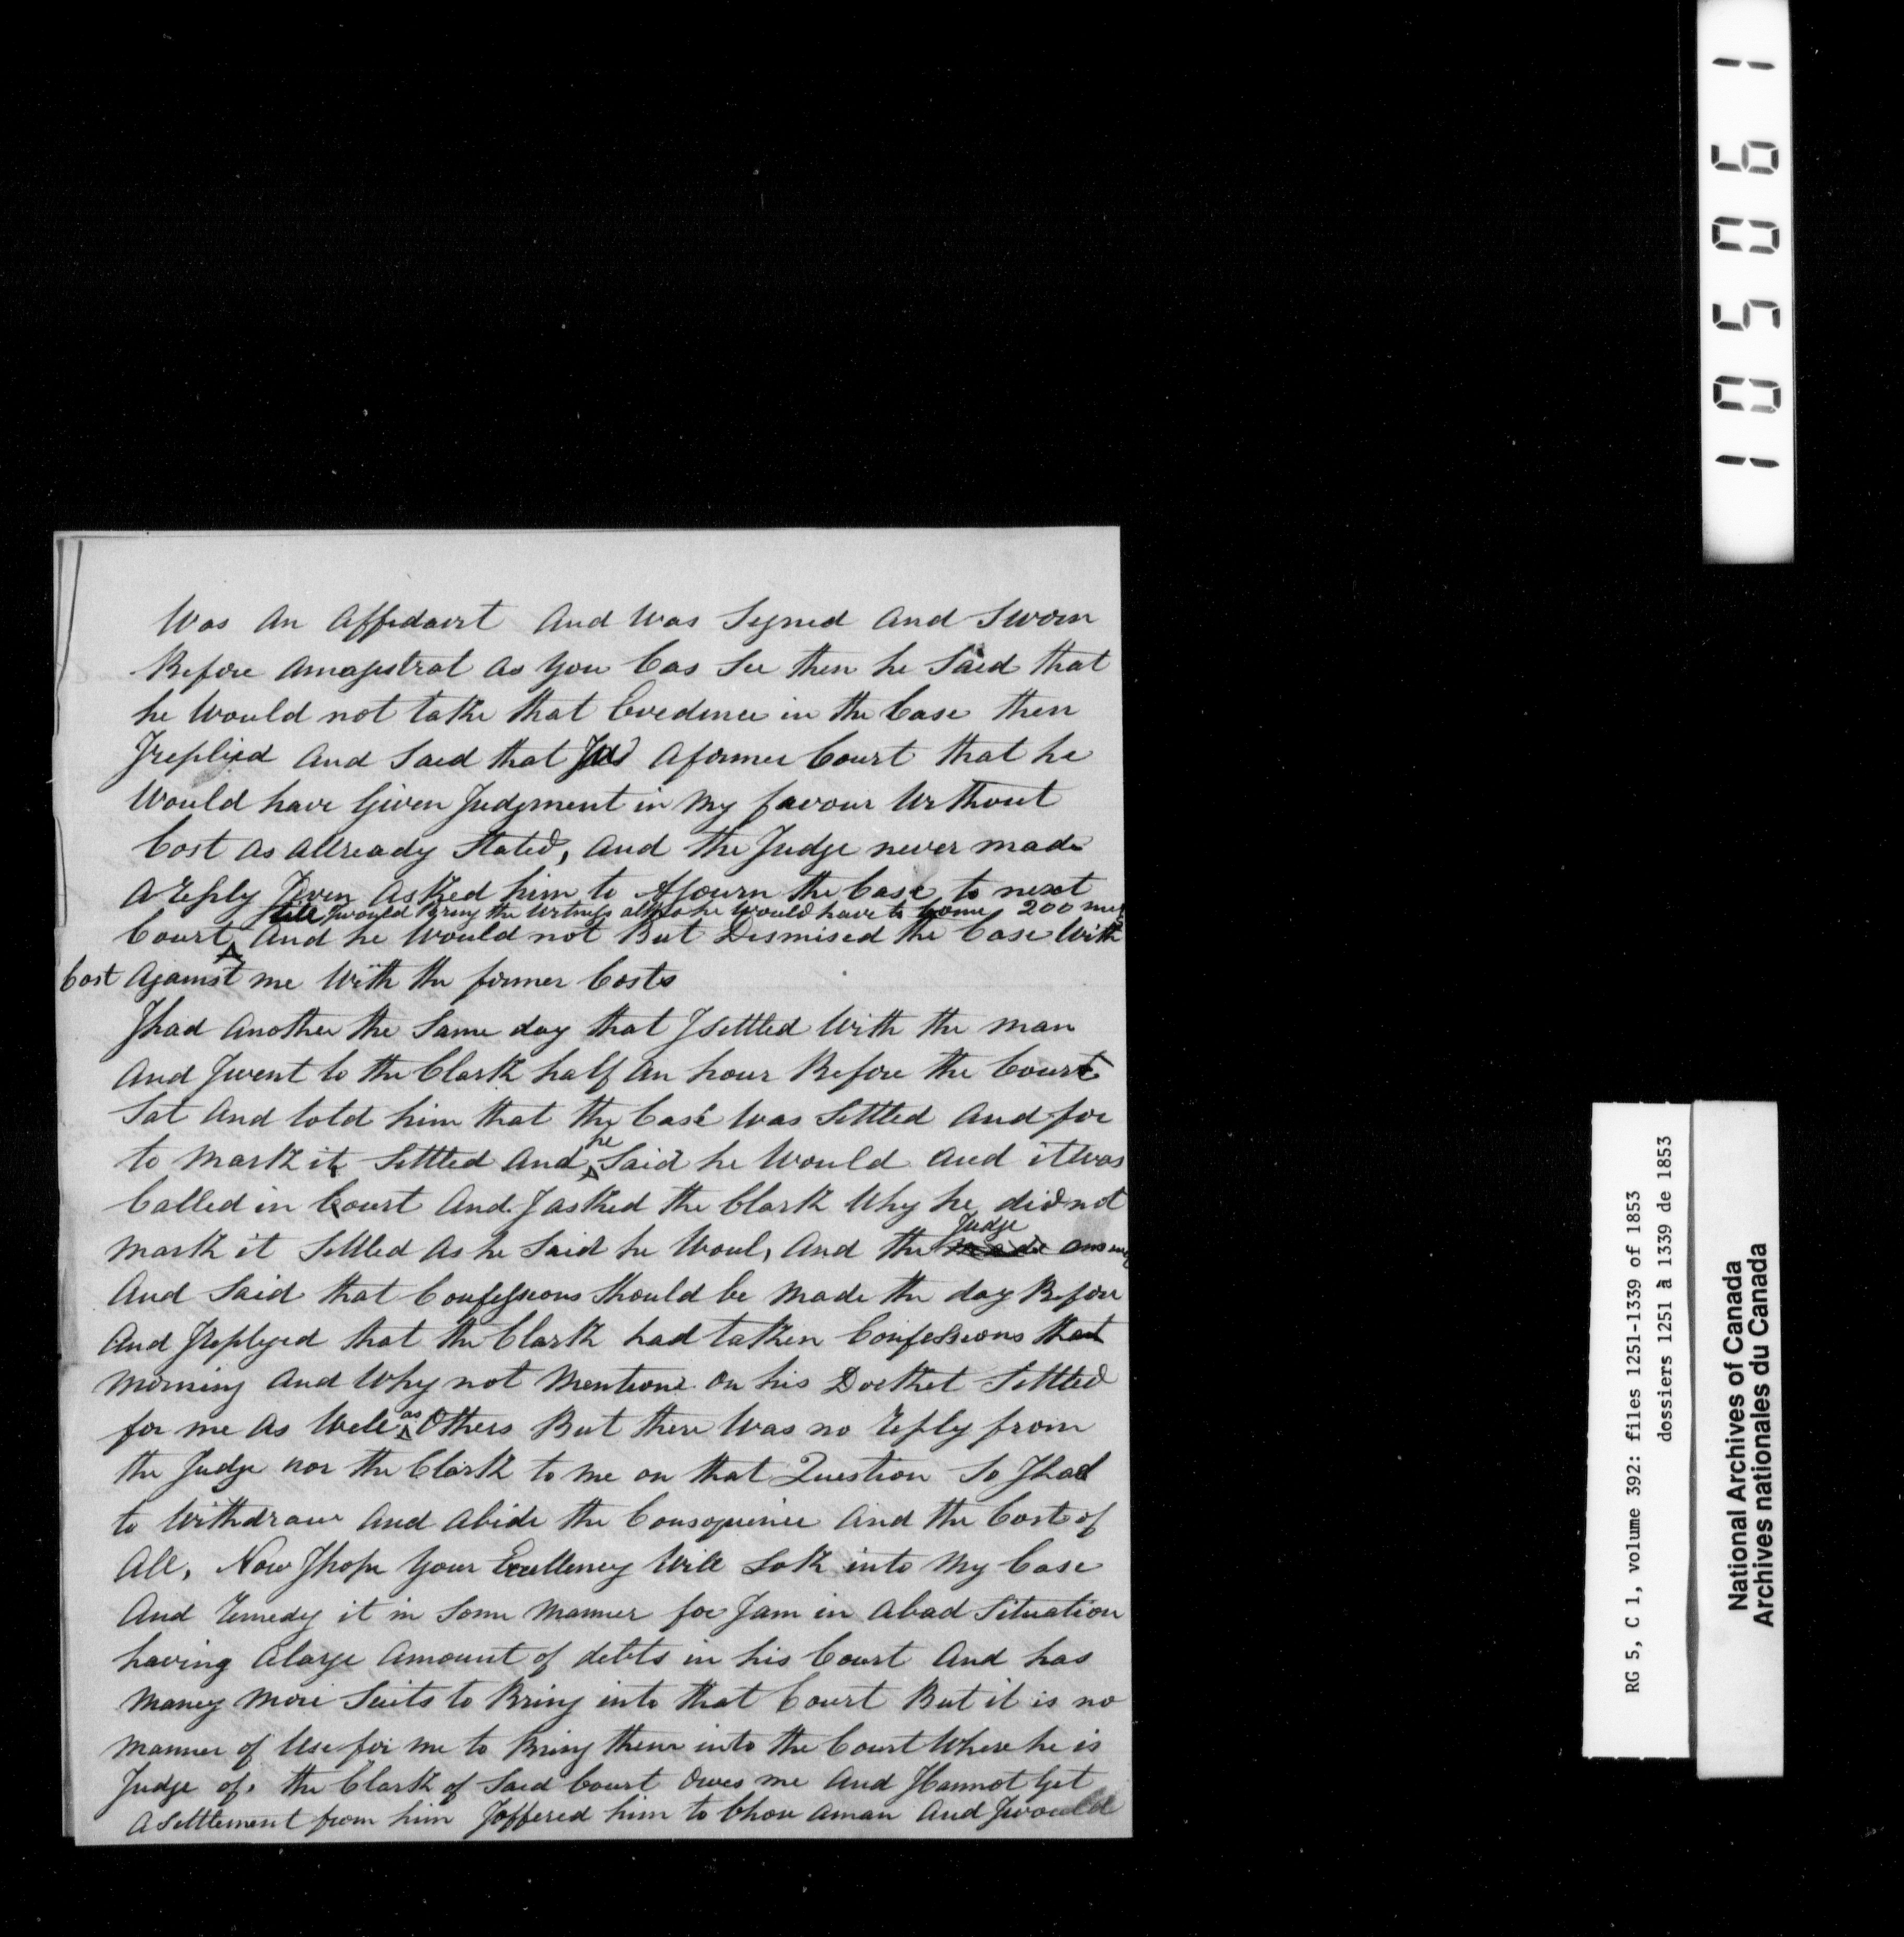 Was An Affidavit And Was Segned And Sworn
Before Amagestrat As you Cas See then he Said that
he Would not take that Evedence in the Case then
I replied And Said that A former Court that he
Would have Given Judgment in My favour Without
Cost As Allready Stated, And the Judge never made
A reply I Asked him to Ajourn the Case to next
till I would Bring the Witness altho he Would have to Come 200 miles
Court And he Would not But Desmised the Case With
Cost Against me With the former Costs
I had Another the Same day that I settled With the man
And I went to the Clark half An hour Before the Court
Sat And told him that the Case Was Settled And for
he
to Mark it Settled And Said he Would And it was
Called in Court And I asked the Clark Why he did not
Judge
Mark it Settled As he Said he Woul, And the made
And Said that Confessions Should be Made the day Before
And I Replyed that the Clark had taken Confessions that
Morning And Why not Mentione On his Docket Settled
as
for me As Well Others But there Was no reply from
the Judge nor the Clark to Me on that Question So I had
to Withdraw And Abide the Consequence And the Cost of
All, Now I hope Your Excellency Will Lok into My Case
And remedy it in Some Manner for I am in Abad Situation
having Alarge Amount of debts in his Court And has
Maney More Suits to Bring into that Court But it is no
Manner of Use for me to Bring them into the Court Where he is
Judge of, the Clark of Said Court Owes me And I Cannot Get
A Settlement from him I offered him to Chou Aman And I would
1 0 5 0 6 1
RG 5, C 1, volume 392: files 1251-1339 of 1853
dossiers 1251 à 1339 de 1853
National Archives of Canada
Archives nationales du Canada